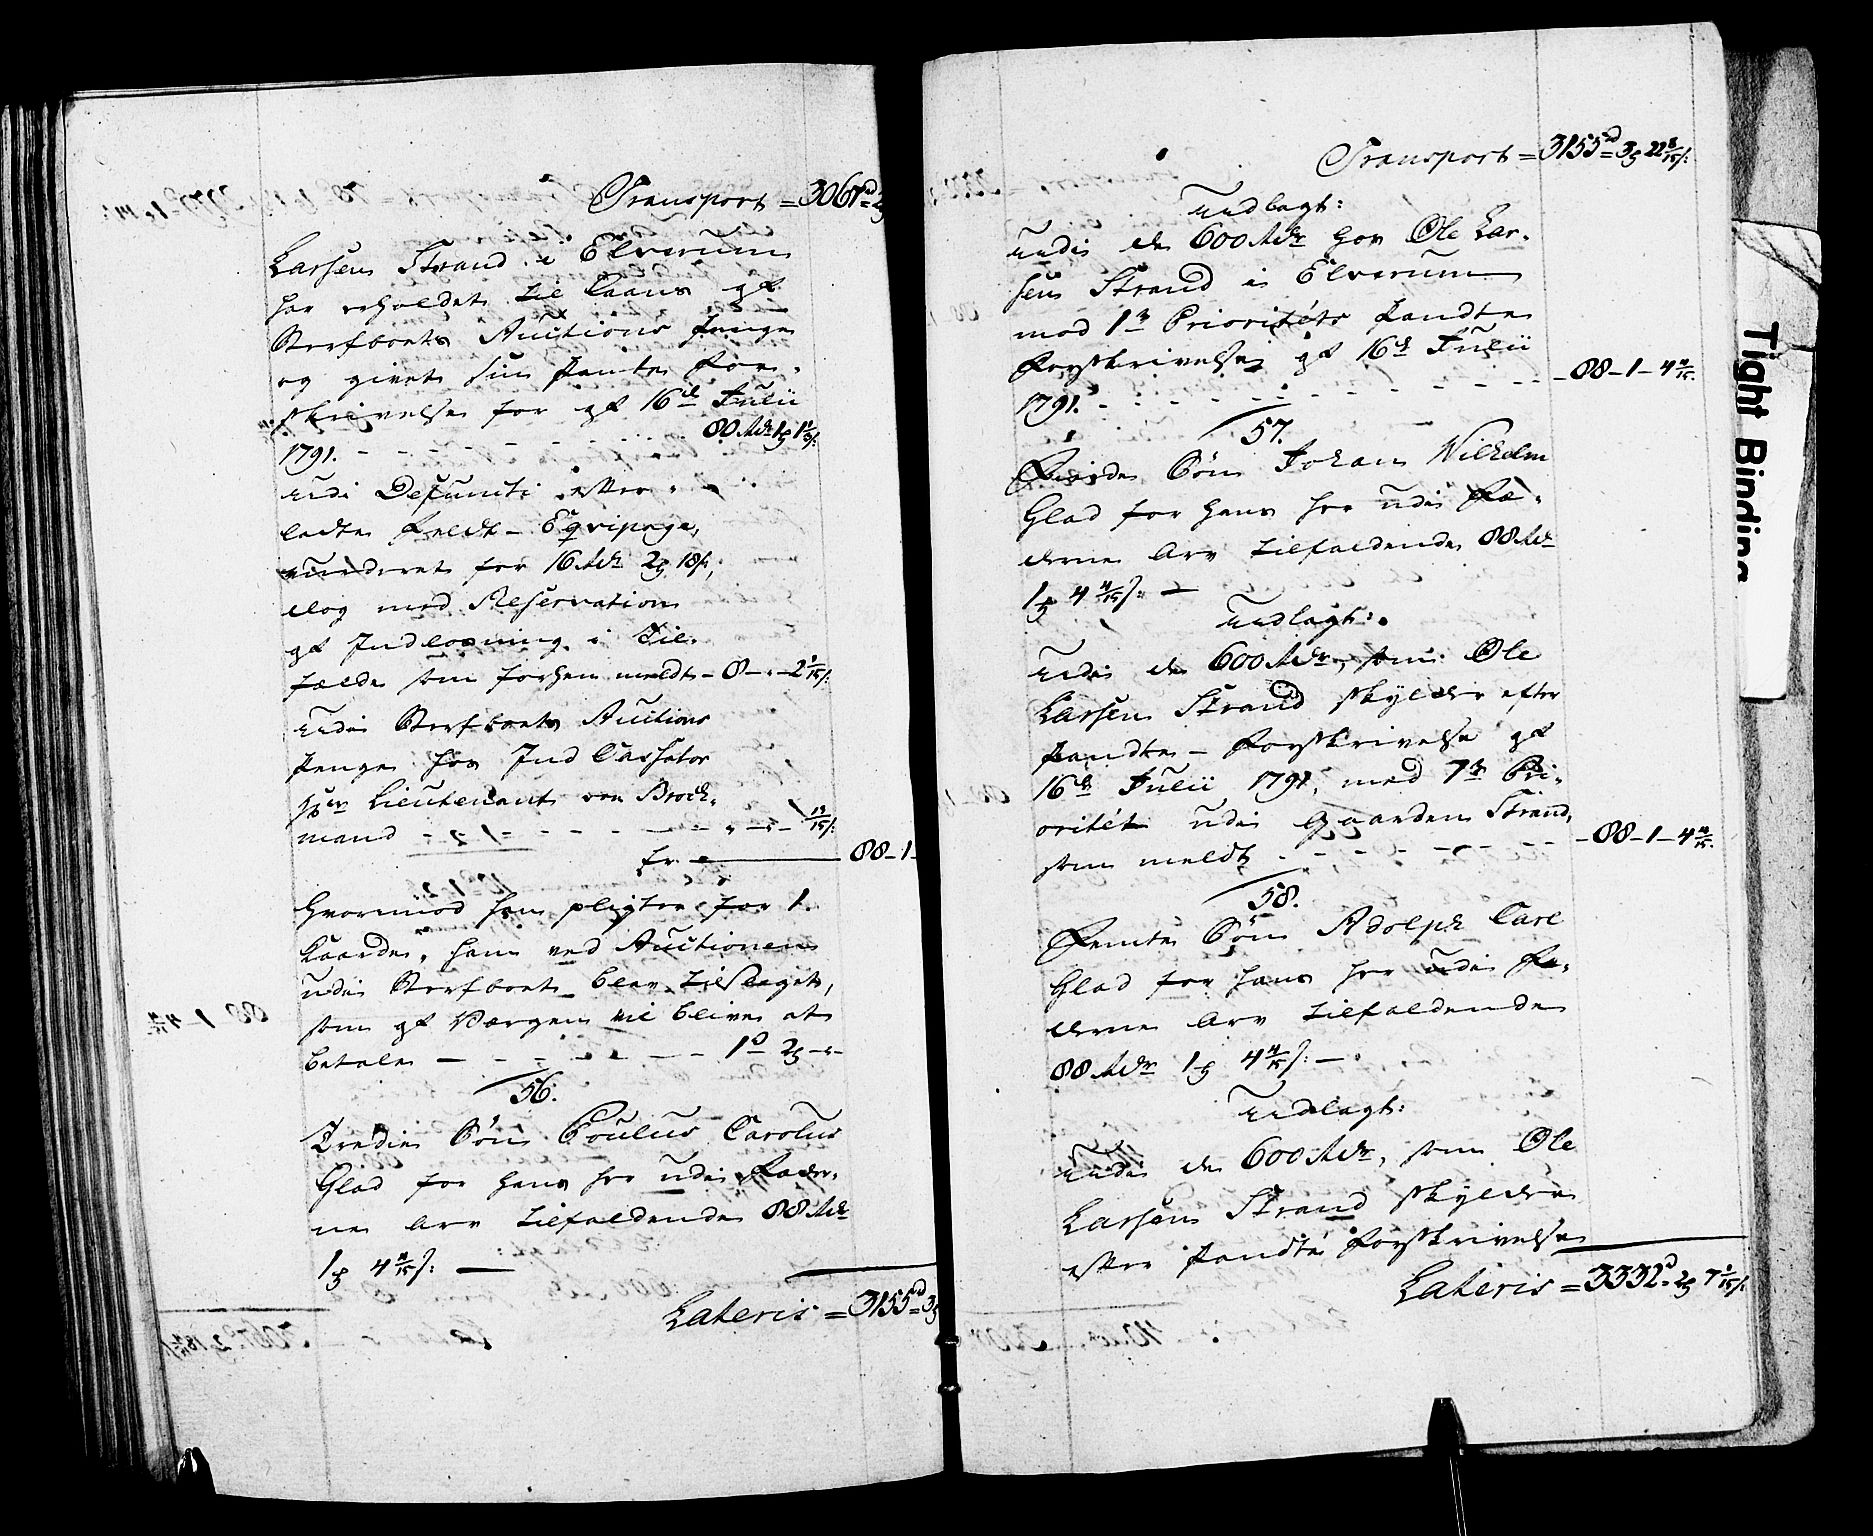 Transport = 3067
Larsen Strand i Elverum
har erholdet til Laans af
Sterfboets Auctions Penge
og givet sin Pante For-
skrivelse for af 16de Julii
1791. - - - - 80 Rdr 1
udi Defuncti efter-
ladte Feldt-Eqvipage,
vurderet for 16 Rdr 2 18 s,
dog med Reservation
af Indløsning i Til-
fælde som forhen meldt - 8 - " - 2
udi Sterfboets Auctions
Penge hos Ind Cassator
Hr Lieutenant von Brock-
mand - - - - 13/15 s:
Er 88 - 1 -
Hvorimod han pligter for 1
Kaarde, ham ved Auctionen
udi Sterfboet blev tilslaget,
som af Værgen vil blive at
betale - - - - 1 2 - " -
56.
Tredie Søn Poulus Carolus
Glad for hans her udi Fæder-
ne Arv tilfaldende 88 Rdr
1 4 11/15 s:
Lateris = 3155 3
Transport = 3155 3 22 8/15 s:
Udlagt:
udi de 600 Rdr hos Ole Lar-
sen Strand i Elverum
mod 1te Prioritets Pandte
Forskrivelse af 16de Julii
1791. - - - - 88 - 1 - 4 11/15.
57.
Fierde Søn Johan Wilhelm
Glad for hans her udi Fæ-
derne Arv tilfaldende 88 Rdr
1 4 11/15 s:
Udlagt:
udi de 600 Rdr, som Ole
Larsen Strand skylder efter
Pandte-Forskrivelse af
16de Julii 1791, med 1te Pri-
oritet udi Gaarden Strand,
som meldt - - - - 88 - 1 - 4 11/15.
58.
Femte Søn Adolph Carl
Glad for hans her udi Fæ-
derne Arv tilfaldende
88 Rdr 1 4 11/15 s:
Udlagt:
udi de 600 Rdr, som Ole
Larsen Strand skylder
efter Pandte Forskrivelse
Lateris = 3332 2 7 s:
Tight Binding